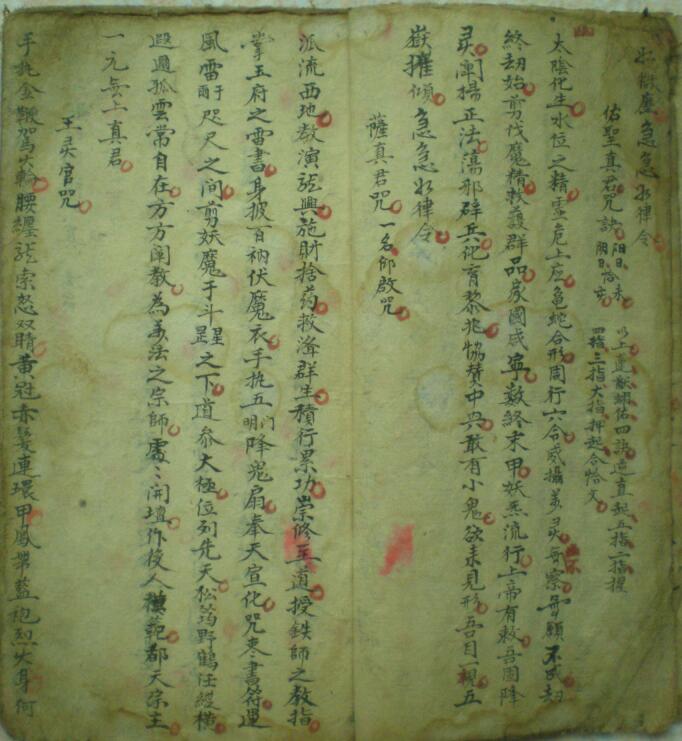 如徽塵急急如律令
佑聖真君咒訣 陽日 未 陰日 亥
以上 四訣 直起五指二指捏
四指三指大指押起合恰文
太陰化生水位之精虛危上应龜蛇合形周行六合威攝萬灵無察無願不成劫
終劫始剪伐魔精救護群品家國咸寧数終末甲妖炁流行上帝有敕吾固降
灵闡揚正法蕩邪群兵化育黎兆協贊中興敢有小鬼欲來見形吾目一視五
嶽摧傾急急如律令
薩真君咒 一名仰啟咒
派流西地教演龍興施財捨药救濟群生積行累功崇修至道授鉄師之教指
掌玉府之雷書身披百衲伏魔衣手执五明降鬼扇奉天宣化咒棗書符運
風雷雨于咫尺之间剪妖魔于斗罡之下道參太極位列先天松筠野鶴任縱横
遐邇孤雲常自在方方闡教為萬法之宗師處〻開壇作後人模範都天宗主
一元無上真君
王灵官咒
手执金鞭駕火輪腰纒龍索怒双睛黄冠赤髮連環甲鳳帶藍袍烈火身何